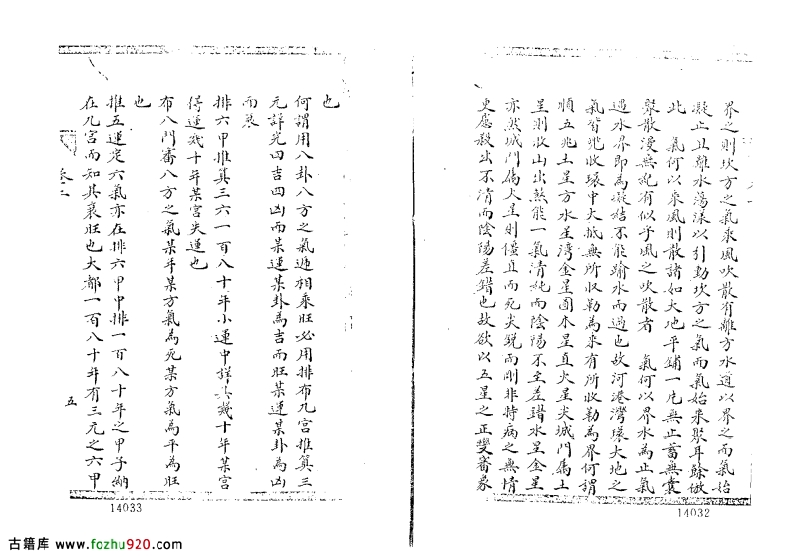 界之則坎方之氣乘風吹散有離方水道以界之而氣始
凝止且離水蕩漾以引動坎方之氣而氣始來聚耳餘倣
此　氣何以乘風則散諸如大地平鋪一片無止蓄無囊
聚散漫無紀有似乎風之吹散者　氣何以界水為止氣
遇水界即為凝結不能踰水而過也故河港灣環大地之
氣皆兜收環中大抵無所收勒為來有所收勒為界何謂
順五兆土星方水星灣金星圓木星直火星尖城門屬土
星則收山出煞能一氣清純而陰陽不至差錯水星金星
亦然城門屬火星則僵直而死尖銳而剛非特病之無情
更慮殺出不清而陰陽差錯也故欲以五星之正變審象
14032
也
何謂用八卦八方之氣遞相乘旺必用排布九宮推算三
元詳究四吉四凶而某運某卦為吉而旺某運某卦為凶
而衰
排六甲推算三六一百八十年小運中詳其幾十年某宮
得運幾十年某宮失運也
布八門審八方之氣某年某方氣為死某方氣為平為旺
也
推五運定六氣亦在排六甲中排一百八十年之甲子納
在九宮而知其衰旺也大都一百八十年有三元之六甲
卷二
五
14033
古籍库 www.fozhu920.com